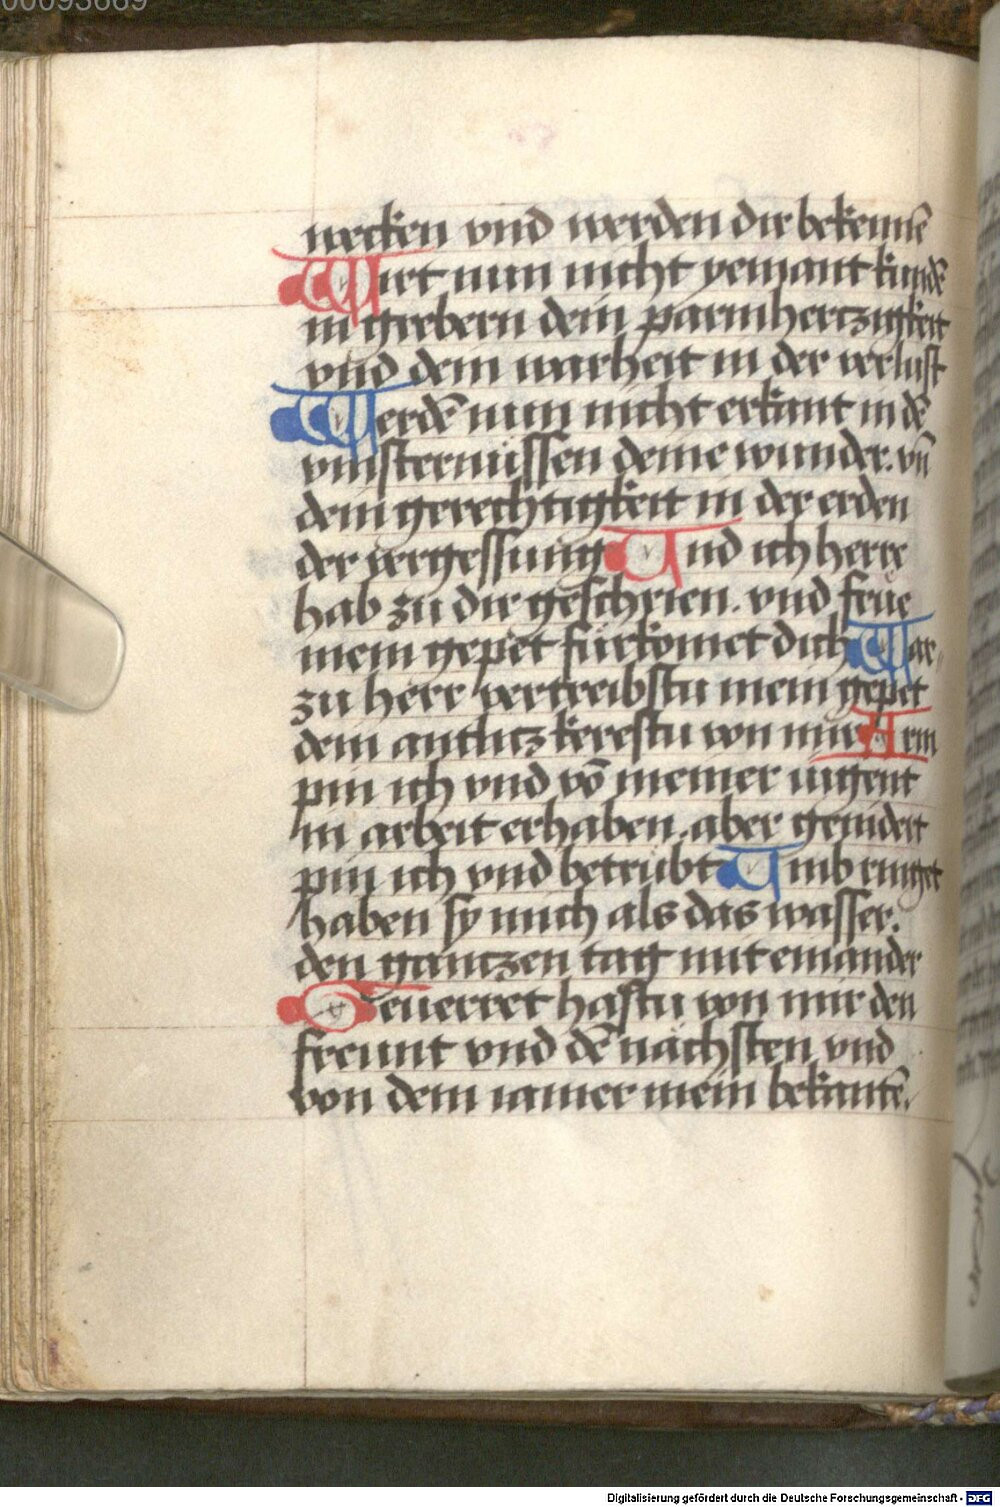 00093669
wecken vnd werden dir bekennē
Wirt nun nicht yemant kundē
in grebern dein parmhertzigkeit
vnd dein warheit in der verlust
Werdē nun nicht erkant in dē
vinsternüssen deine wunder. vn̄
dein gerechtigkeit in der erden
der vergessung Vnd ich herre
hab zu dir geschrien. vnd frue
mein gepet fürkomet dich War
zu herr vertreibstu mein gepet
dein antlicz kerestu von mir Arm
pin ich vnd vō meiner iugent
in arbeit erhaben. aber genidert
pin ich vnd betrübt Vmb ringet
haben sy mich als das wasser.
den gantzen tag mit einander
Geuerret hastu von mir den
freunt vnd dē nächsten vnd
von dem iamer mein bekantē.
Digitalisierung gefördert durch die Deutsche Forschungsgemeinschaft - DFG